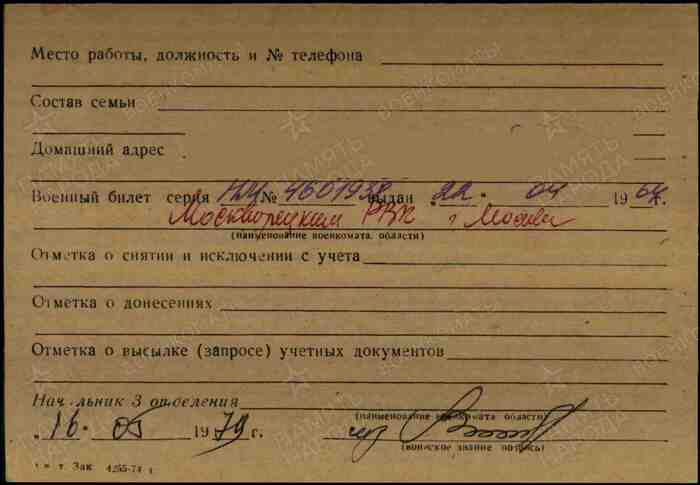 Место работы, должность и № телефона
Состав семьи
Домашний адрес
Военный билет серия НЦ № 4601938 выдан 22. 04 1964 г.
Москворецким РВК г Москвы
(наименование военкомата, области)
Отметка о снятии и исключении с учета
Отметка о донесениях
Отметка о высылке (запросе) учетных документов
Начальник 3 отделения
(наименование военкомата области)
„ 16 . 05 1979 г.
(воинское звание подпись)
т. Зак 4255-74 г